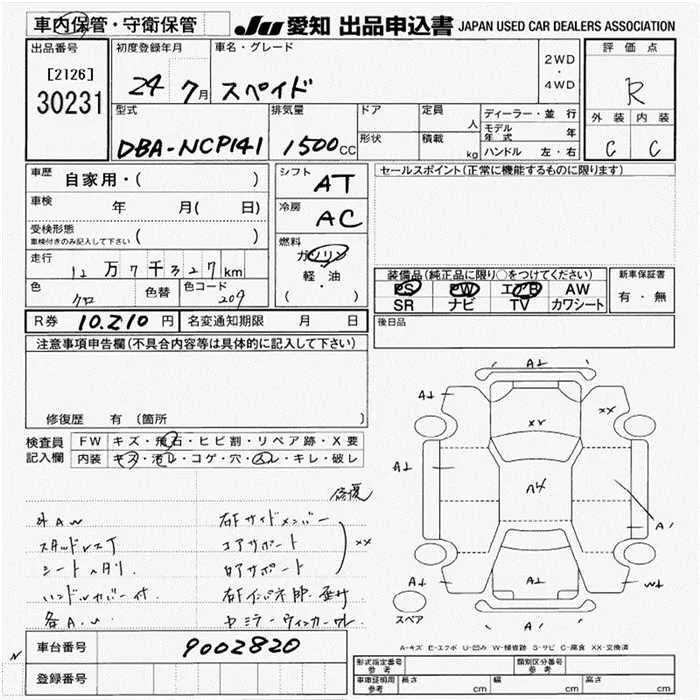 車内保管・守衛保管
JU 愛知 出品申込書 JAPAN USED CAR DEALERS ASSOCIATION
出品番号
[2126]
30231
初度登録年月
24 7月
車名・グレード
スペイド
2WD
・
4WD
評価点
R
外装 内装
C C
型式
DBA-NCP141
排気量
1500cc
ドア
形状
定員
人
積載
kg
ディーラー・並行
モデル年式 年
ハンドル 左・右
車歴 自家用・( )
車検 年 月( 日)
受検形態
車検付きのみ記入して下さい ( )
走行 12万7千327km
色 クロ 色替 色コード 209
シフト AT
冷房 AC
燃料
ガソリン
軽・油
( )
セールスポイント(正常に機能するものに限ります)
装備品(純正品に限り○をつけてください)
PS PW エアB AW
SR ナビ TV カワシート
新車保証書
有・無
R券 10.210円 名変通知期限 月 日
後日品
注意事項申告欄(不具合内容等は具体的に記入して下さい)
修復歴 有 (箇所 )
検査員
記入欄
FW キズ・飛石・ヒビ割・リペア跡・X要
内装 キズ・汚レ・コゲ・穴・スレ・キレ・破レ
修復
外AW
スタッドレスT
ハンドルカバー付
右Fサイドメンバー
コアサポート
XX
A1
A1
XX
XX
A1
A4
A1
A1
W1
A1
スペア
A-キズ E-エクボ U-凹み W-補修跡 S-サビ C-腐食 XX-交換済
車台番号 9002820
登録番号
形式指定番号
参考
類別区分番号
参考
車庫証明用
参考
長さ cm 幅 cm 高さ cm